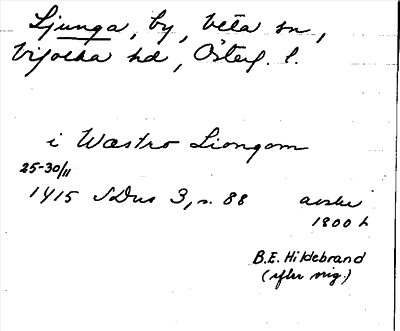 Ljunga, by, Veta sn,
Vifolka hd, Österg. l.
i Wæstro Liongom
25-30/11
1415 SDns 3, s. 88 avskr
1800 t
B.E. Hildebrand
(efter orig.)